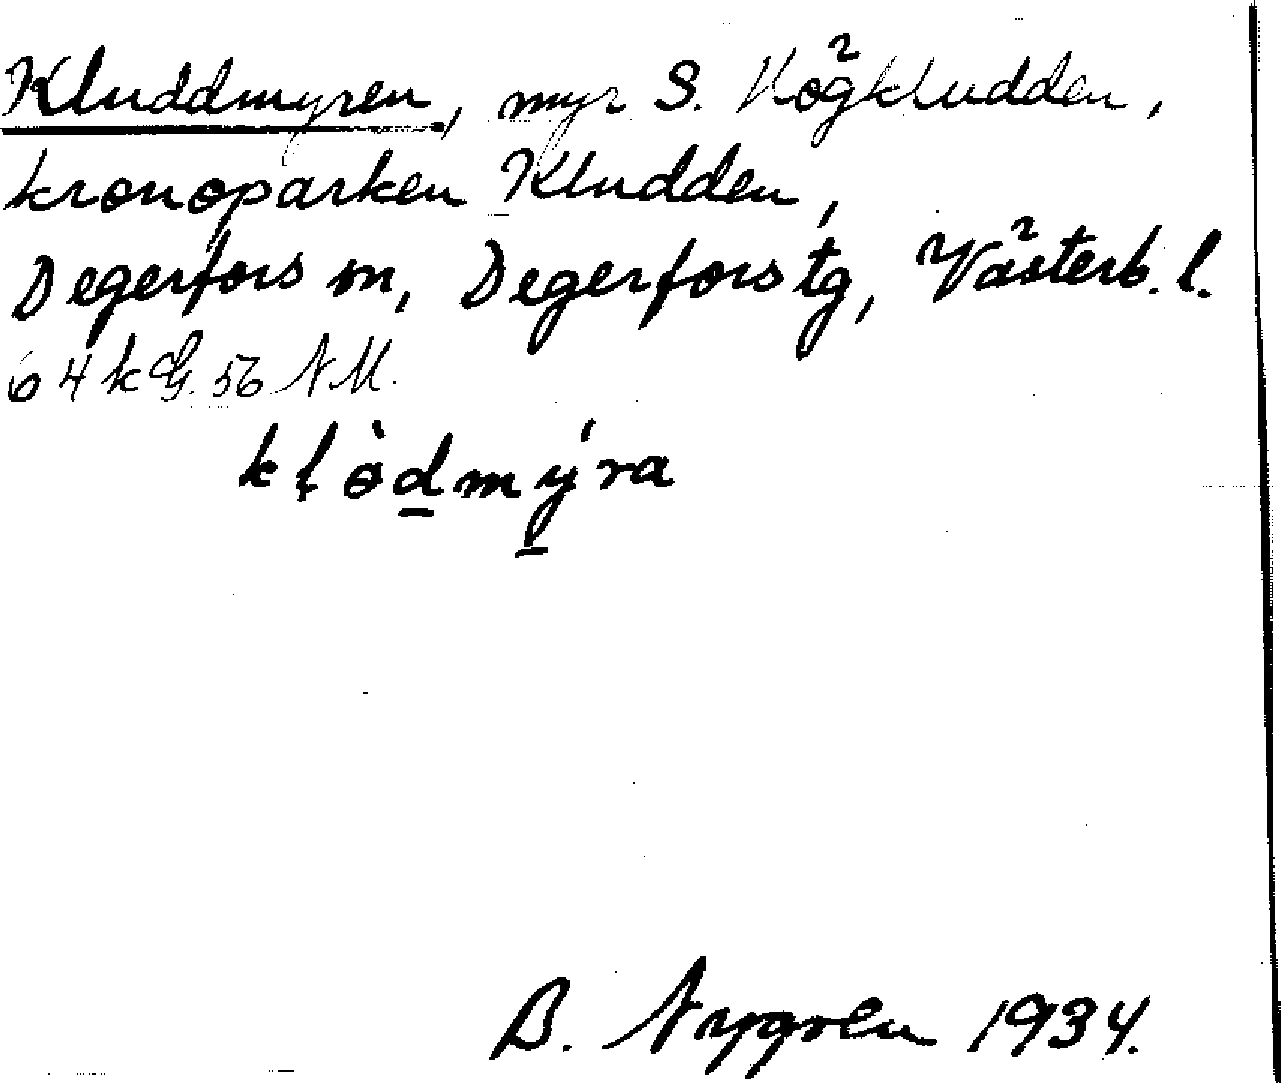 Kluddmyren, myr S. Högkludden,
kronoparken Kludden,
Degerfors sn, Degerfors tg, Västerb. l.
64 k G. 56 NM.
kłòdmýra
B. Nygren 1934.